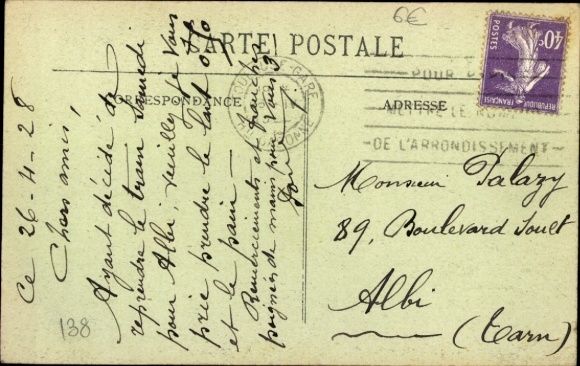 6€
CARTE POSTALE
CORRESPONDANCE
ADRESSE
40c
POSTES
REPUBLIQUE FRANÇAISE
GARE
POUR
METTRE LE
DE L'ARRONDISSEMENT
Ce 26-4-28
Chers amis,
Ayant décidé de
reprendre le train samedi
pour Albi, veuillez je vous
prie prendre le lait
et le pain –
Remerciements et franches
poignées de mains pour vous 3
Monsieur Palazy
89, Boulevard Soult
Albi
(Tarn)
138